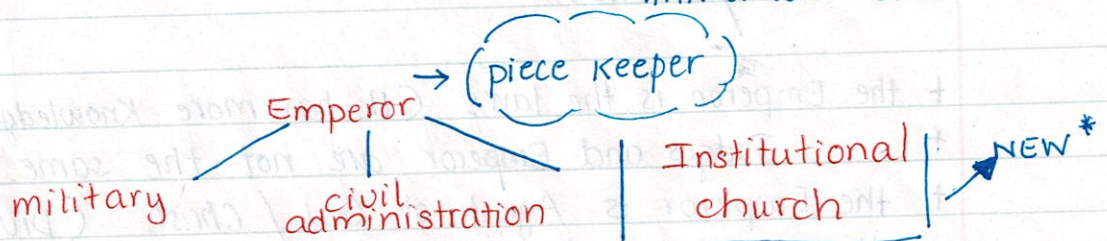 → (piece keeper)
Emperor
military
civil
administration
Institutional
church
NEW*